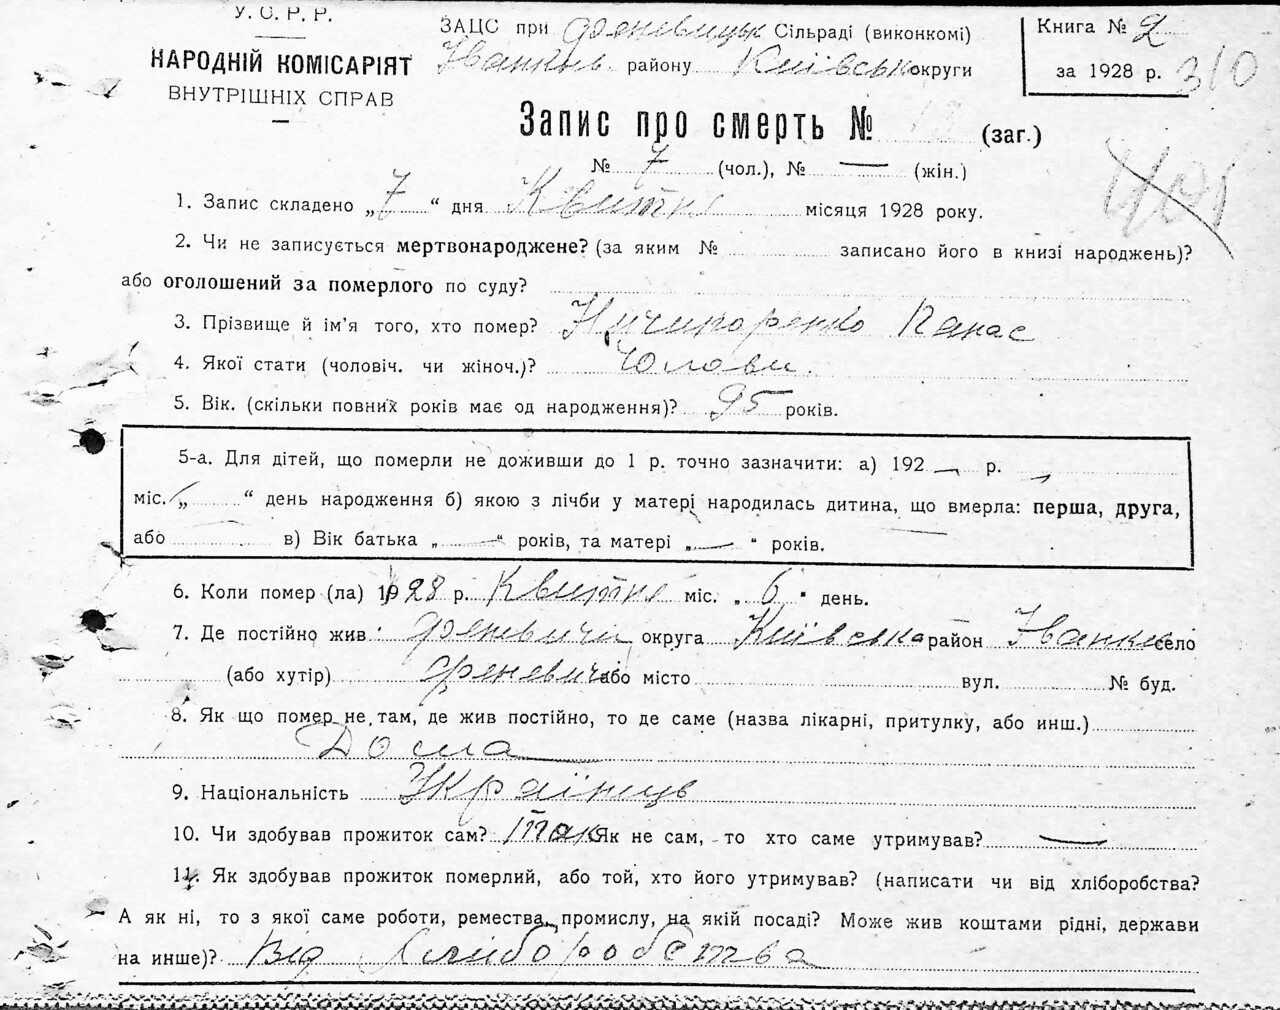 У. С. Р. Р.
НАРОДНІЙ КОМІСАРІЯТ
ВНУТРІШНІХ СПРАВ
ЗАЦС при Френевицьк Сільраді (виконкомі)
Іванків району Київськ округи
Книга № 2
за 1928 р. 310
Запис про смерть № (заг.)
№ 7 (чол.), № — (жін.)
1. Запис складено „7“ дня Квітня місяця 1928 року.
2. Чи не записується мертвонароджене? (за яким № записано його в книзі народжень)?
або оголошений за померлого по суду?
3. Прізвище й ім'я того, хто помер? Ничипоренко Панас
4. Якої стати (чоловіч. чи жіноч.)? Чолови.
5. Вік. (скільки повних років має од народження)? 95 років.
5-а. Для дітей, що померли не доживши до 1 р. точно зазначити: а) 192 — р.
міс. „ “ день народження б) якою з лічби у матері народилась дитина, що вмерла: перша, друга,
або в) Вік батька „—“ років, та матері „—“ років.
6. Коли помер (ла) 1928 р. Квитня міс. „6“ день.
7. Де постійно жив Френевичи округа Київська район Іванків село
(або хутір) Френевичі або місто вул. № буд.
8. Як що помер не там, де жив постійно, то де саме (назва лікарні, притулку, або инш.)
Дома
9. Національність Українць
10. Чи здобував прожиток сам? так Як не сам, то хто саме утримував? —
11. Як здобував прожиток померлий, або той, хто його утримував? (написати чи від хліборобства?
А як ні, то з якої саме роботи, ремества, промислу, на якій посаді? Може жив коштами рідні, держави
на инше)? Від Хліборобства